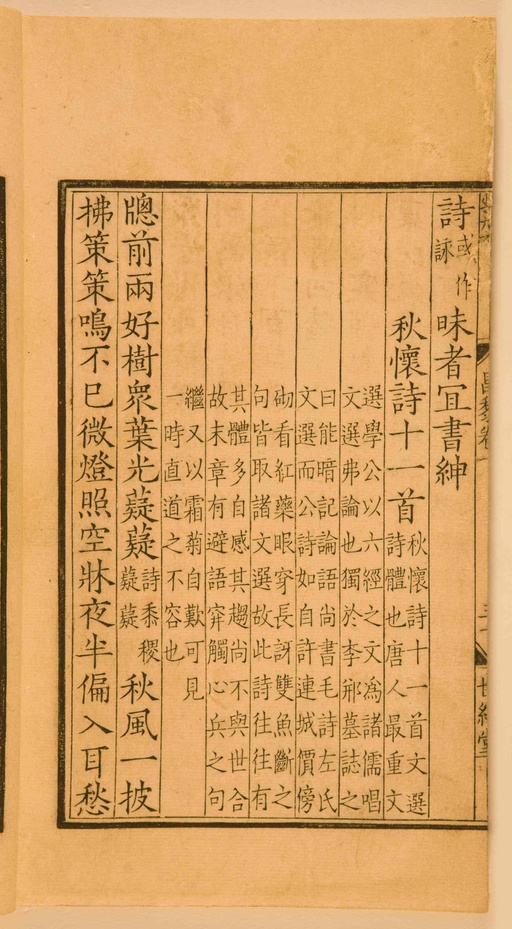 詩或作詠昧者冝書紳
秋懷詩十一首秋懷詩十一首文選
詩體也唐人最重文
選學公以六經之文爲諸儒唱
文選弗論也獨於李邢墓誌之
曰能暗記論語尚書毛詩左氏
文選而公詩如自許連城價傍
砌看紅藥眼穿長訝雙魚斷之
句皆取諸文選故此詩往往有
其體多自感其趨尚不與世合
故末章有避語穽觸心兵之句
繼又以霜菊自歎可見
一時直道之不容也
牕前兩好樹衆葉光薿薿詩黍稷薿薿秋風一披
拂策策鳴不已微燈照空牀夜半偏入耳愁